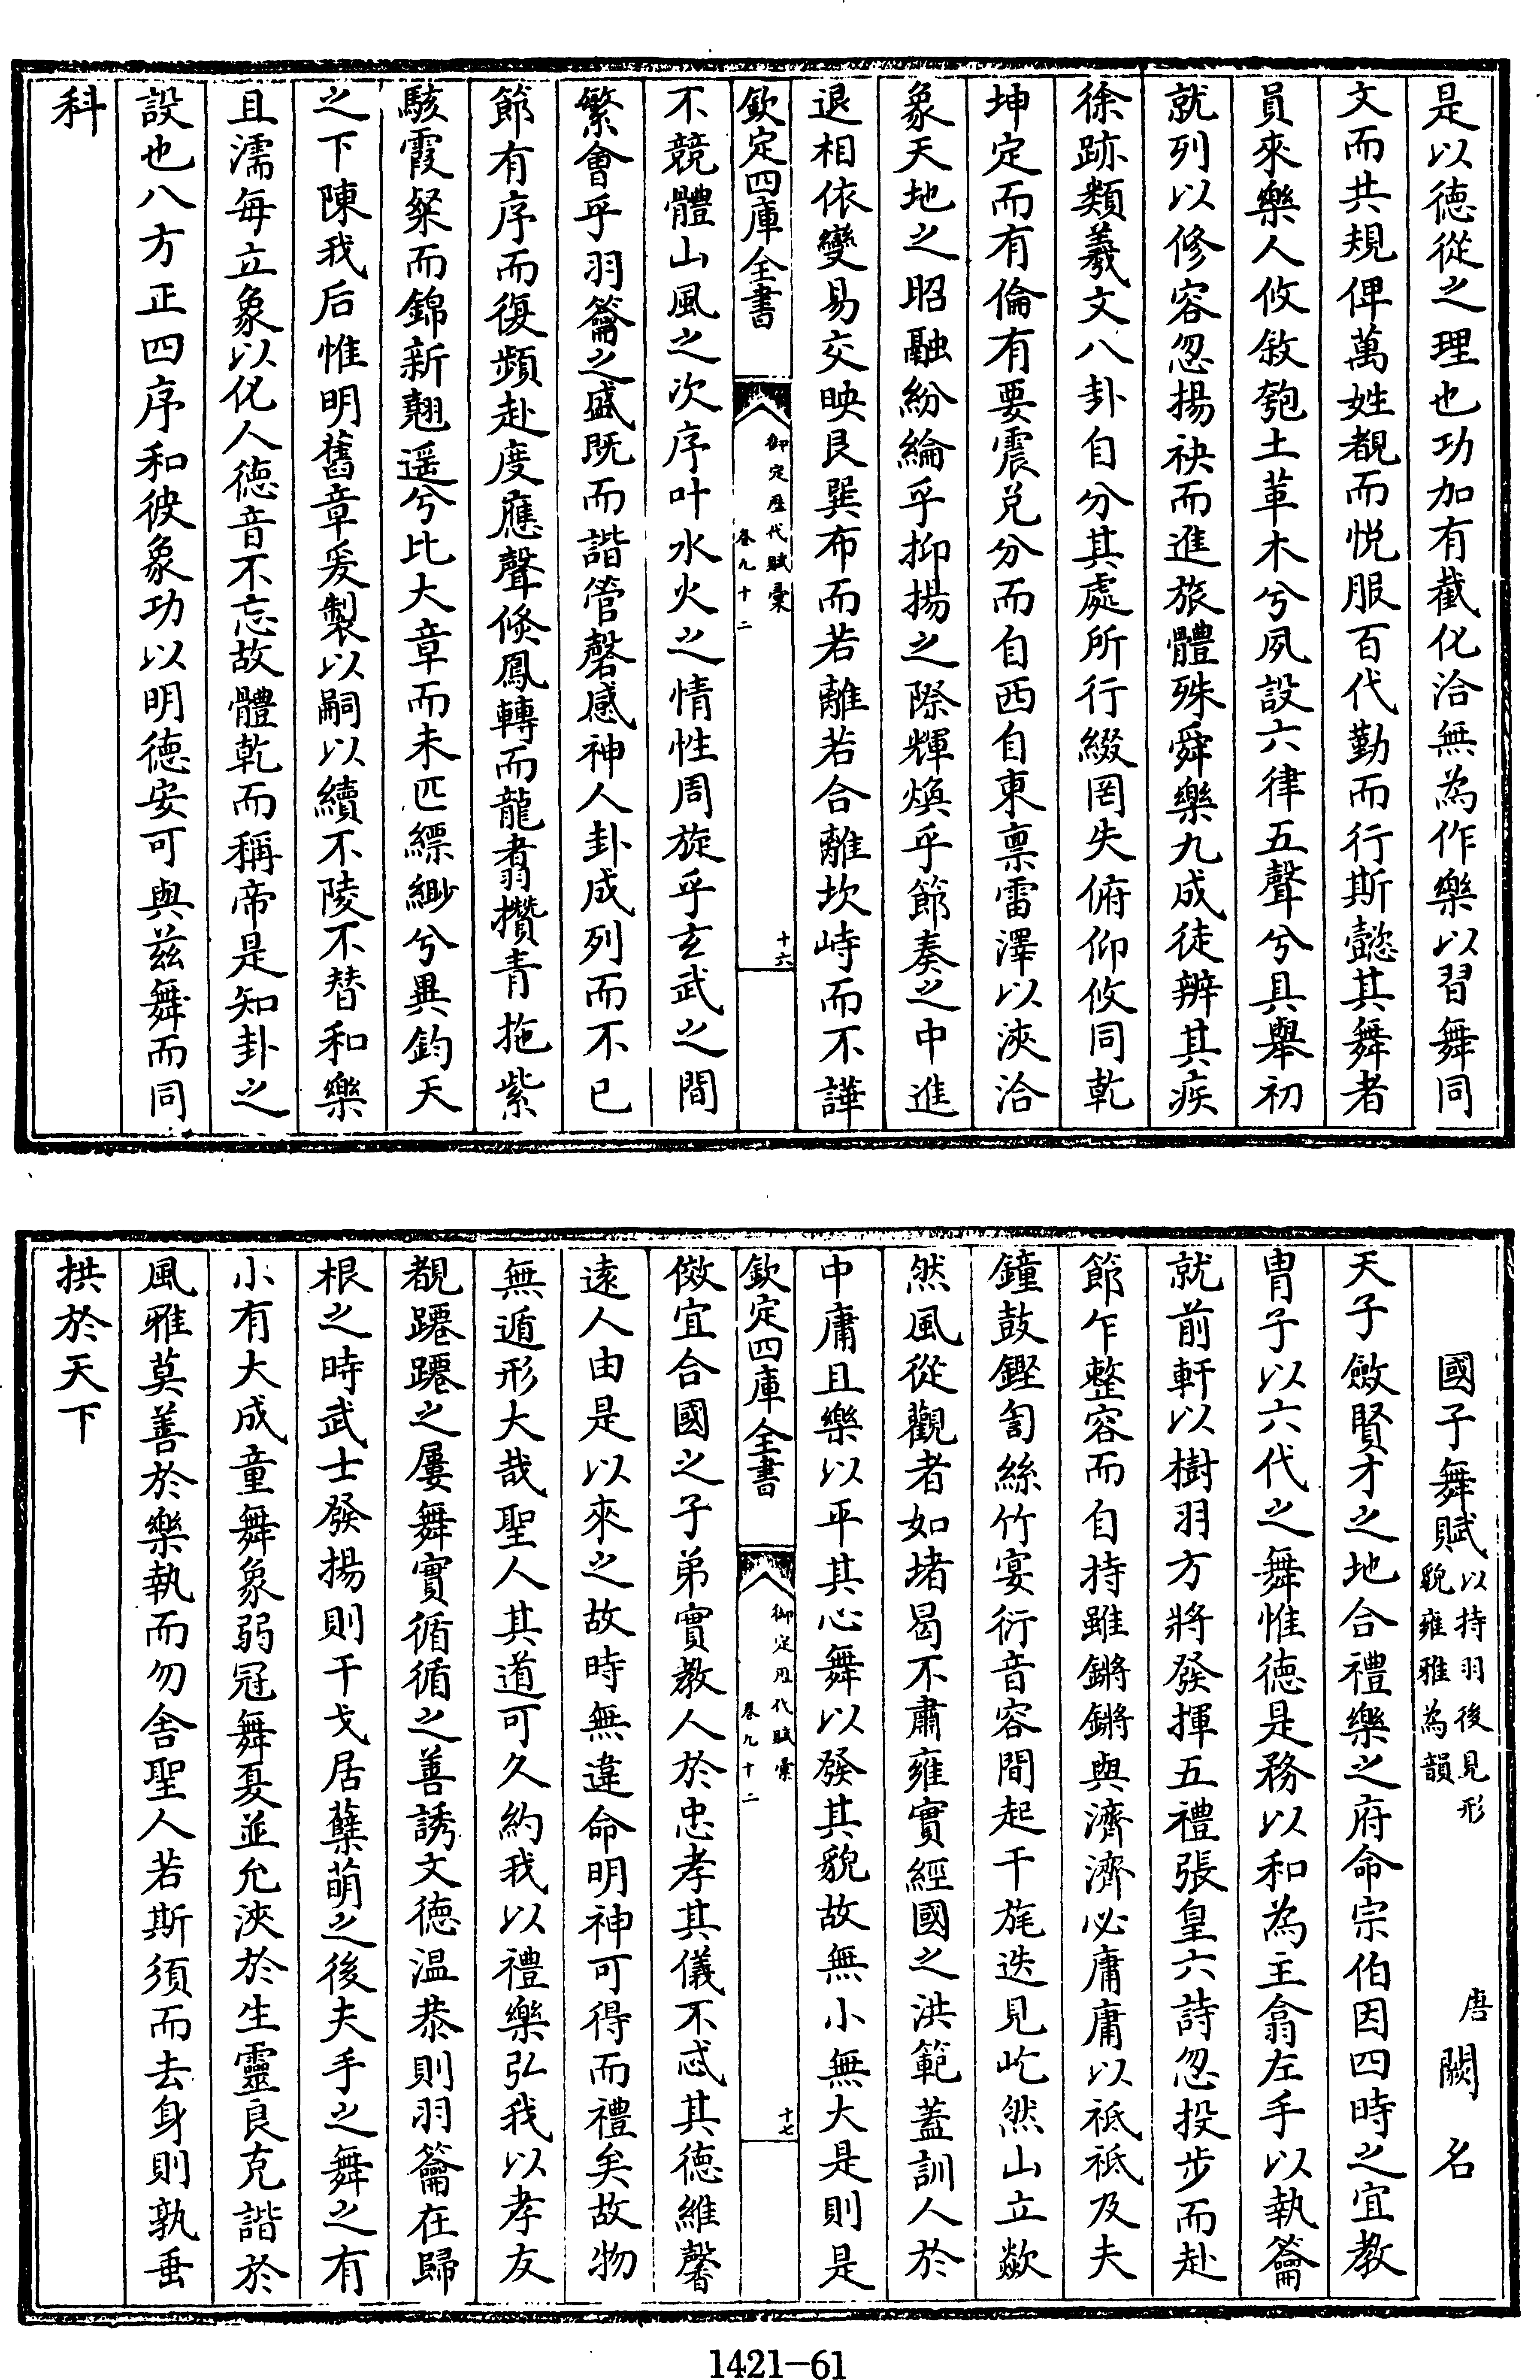 是以徳從之理也功加有截化洽無為作樂以習舞同
文而共規俾萬姓覩而悦服百代勤而行斯懿其舞者
員來樂人攸敘匏土革木兮夙設六律五聲兮具舉初
就列以修容忽揚袂而進旅體殊舜樂九成徒辨其疾
徐跡類羲文八卦自分其處所行綴罔失俯仰攸同乾
坤定而有倫有要震兑分而自西自東禀雷澤以浹洽
象天地之昭融紛綸乎抑揚之際輝煥乎節奏之中進
退相依變易交映艮巽布而若離若合離坎峙而不譁
欽定四庫全書
御定歴代賦彙
卷九十二
十六
不競體山風之次序叶水火之情性周旋乎玄武之間
繁會乎羽籥之盛既而諧管磬感神人卦成列而不已
節有序而復頻赴度應聲倏鳳轉而龍翥攢青拖紫
駭霞粲而錦新翹遥兮比大章而未匹縹緲兮異鈞天
之下陳我后惟明舊章爰製以嗣以續不陵不替和樂
且濡每立象以化人徳音不忘故體乾而稱帝是知卦之
設也八方正四序和彼象功以明徳安可與兹舞而同
科
國子舞賦
以持羽後見形
貌雍雅為韻
唐
闕名
天子斂賢才之地合禮樂之府命宗伯因四時之宜教
胄子以六代之舞惟徳是務以和為主翕左手以執籥
就前軒以樹羽方將發揮五禮張皇六詩忽投步而赴
節乍整容而自持雖鏘鏘與濟濟必庸庸以祗祗及夫
鐘鼓鏗訇絲竹宴衍音容間起干旄迭見屹然山立歘
然風從觀者如堵曷不肅雍實經國之洪範蓋訓人於
中庸且樂以平其心舞以發其貌故無小無大是則是
欽定四庫全書
御定歴代賦彙
卷九十二
十七
傚宜合國之子弟實教人於忠孝其儀不忒其徳維馨
遠人由是以來之故時無違命明神可得而禮矣故物
無遁形大哉聖人其道可久約我以禮樂弘我以孝友
覩躚躚之屢舞實循循之善誘文徳温恭則羽籥在歸
根之時武士發揚則干戈居蘖萌之後夫手之舞之有
小有大成童舞象弱冠舞夏並允浹於生靈良克諧於
風雅莫善於樂執而勿舍聖人若斯須而去身則孰垂
拱於天下
1421-61